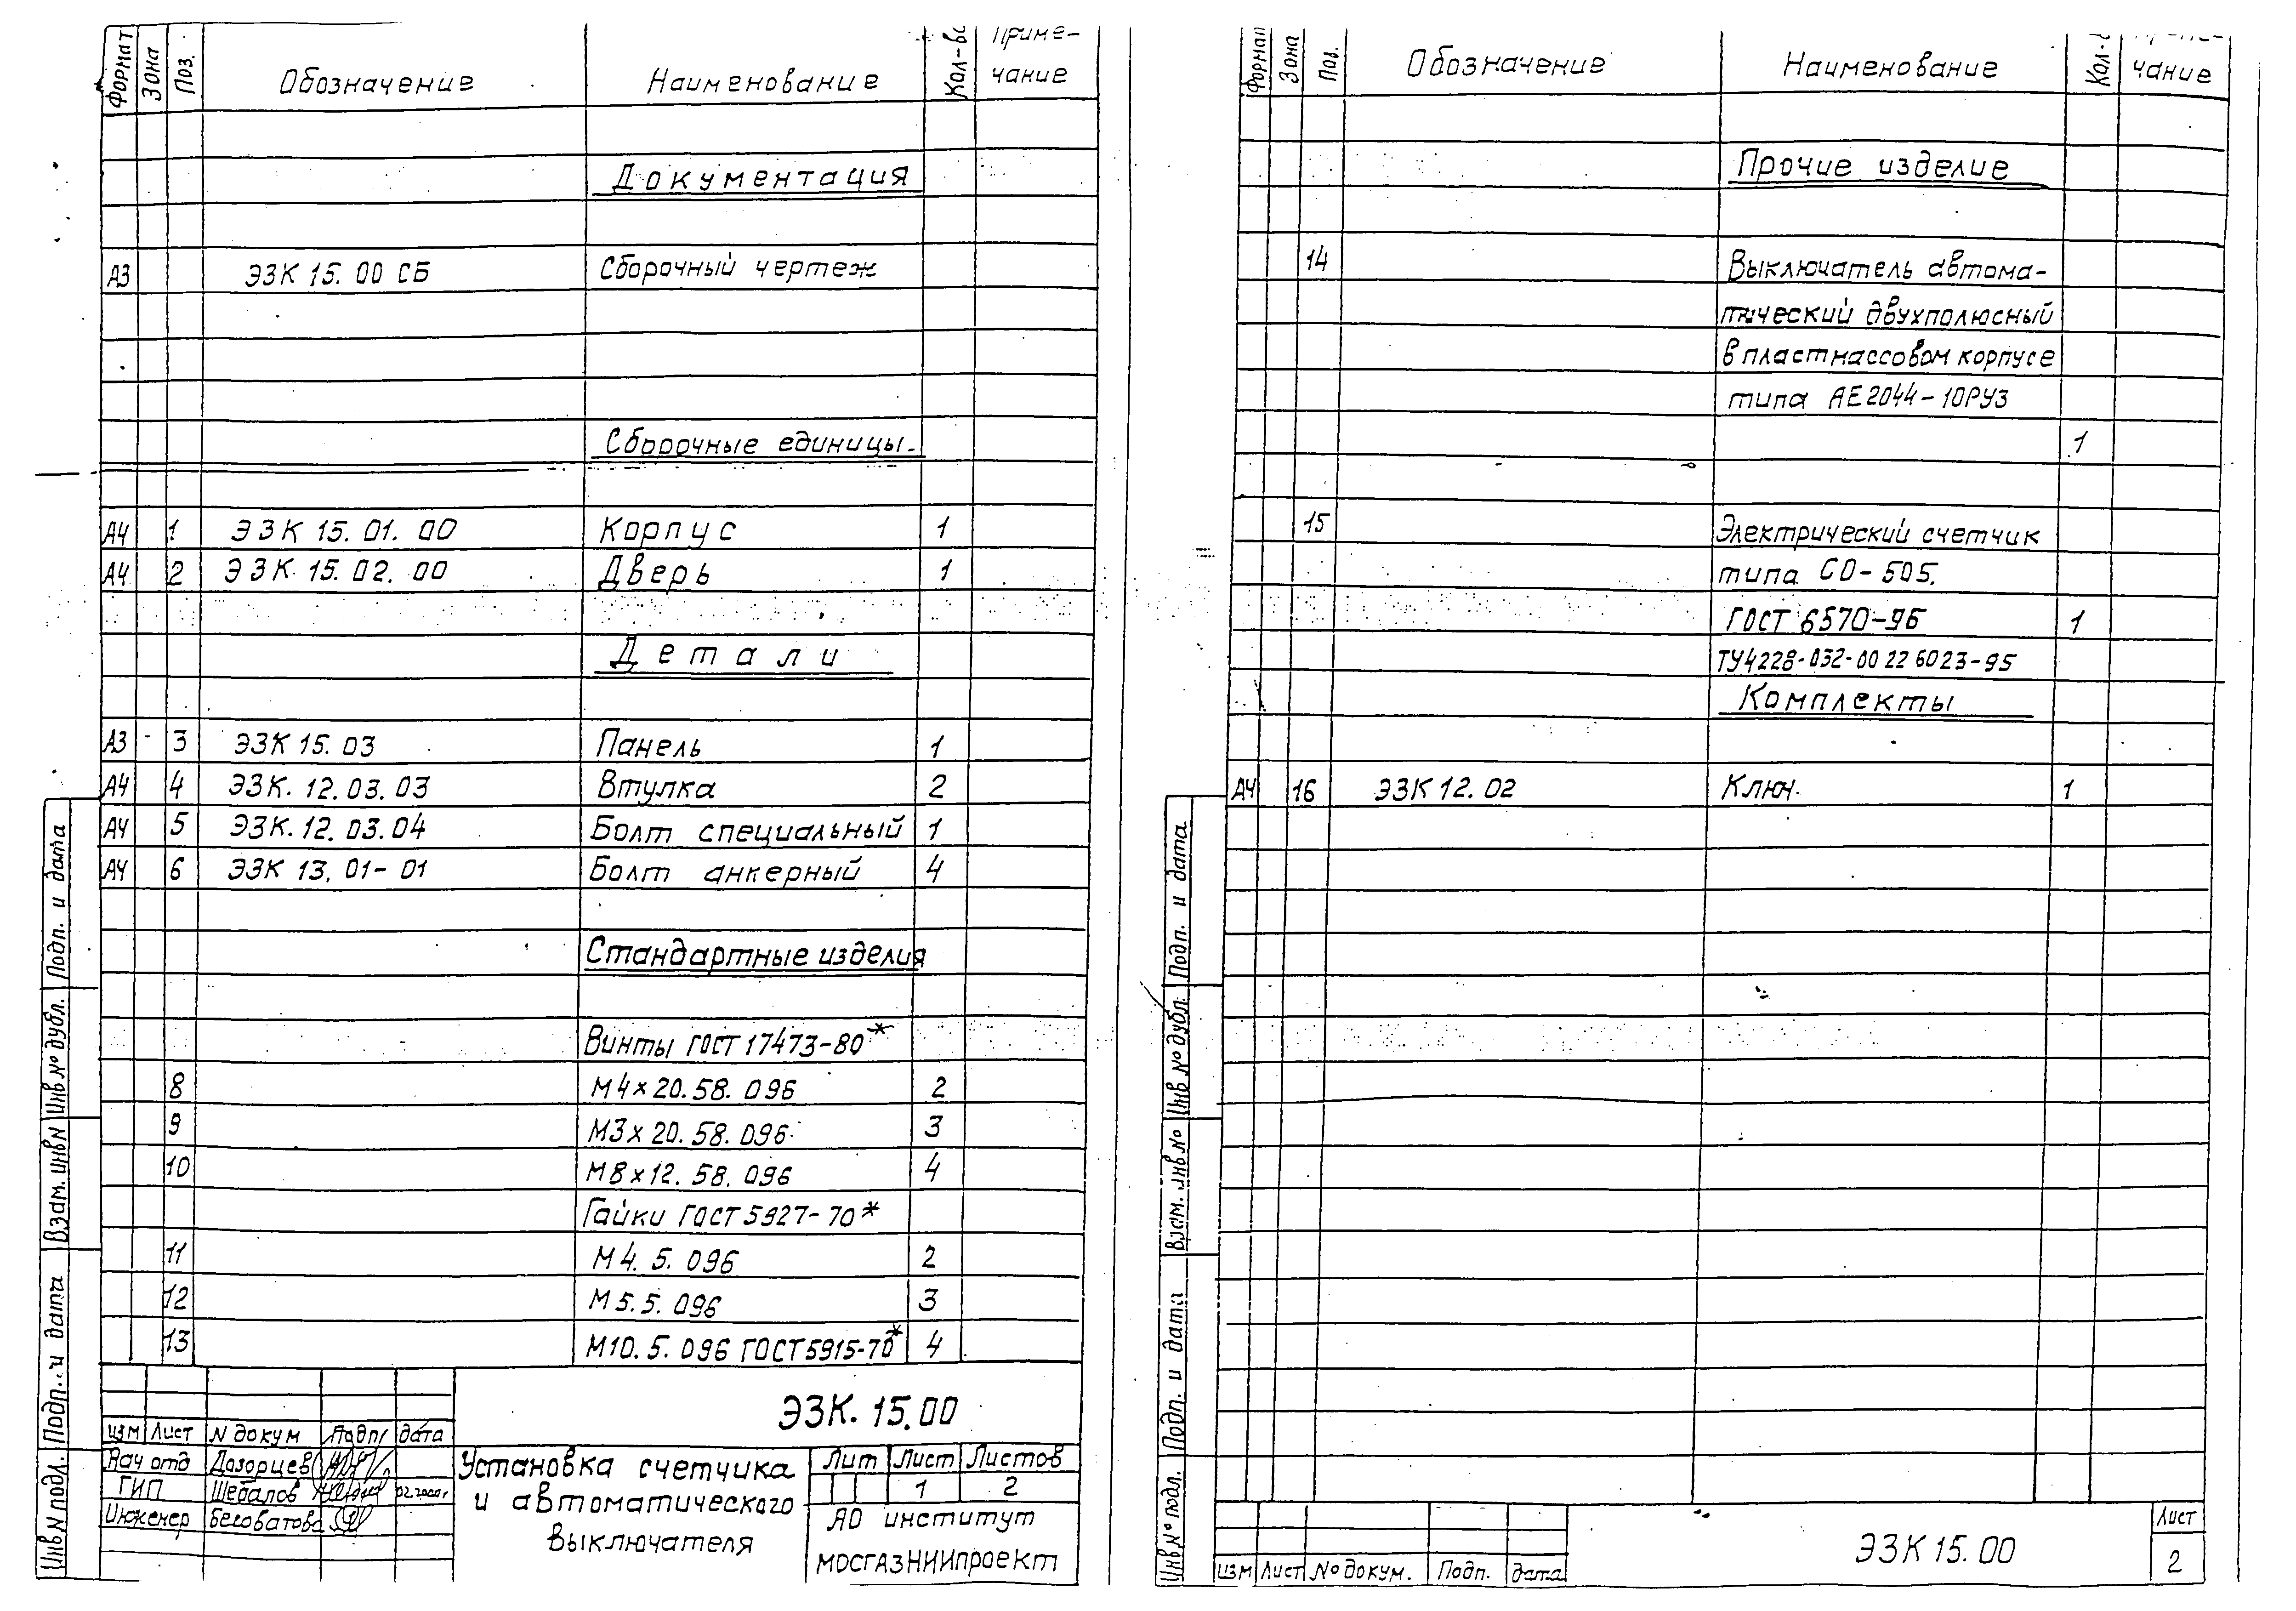 Формат Зона Поз. Обозначение Наименование Кол-во Приме-
чание
Документация
А3 ЭЗК 15. 00 СБ Сборочный чертеж
Сборочные единицы.
А4 1 ЭЗК 15. 01. 00 Корпус 1
А4 2 ЭЗК. 15. 02. 00 Дверь 1
Детали
А3 3 ЭЗК 15. 03 Панель 1
А4 4 ЭЗК. 12. 03. 03 Втулка 2
А4 5 ЭЗК. 12. 03. 04 Болт специальный 1
А4 6 ЭЗК 13. 01-01 Болт анкерный 4
Стандартные изделия
Винты ГОСТ 17473-80*
8 М4х20. 58. 096 2
9 М3х20. 58. 096 3
10 М8х12. 58. 096 4
Гайки ГОСТ 5927-70*
11 М4. 5. 096 2
12 М5. 5. 096 3
13 М10. 5. 096 ГОСТ5915-70* 4
Подп. и дата
Инв № дубл.
Взам. инв N
Подп. и дата
Инв N подл.
изм Лист N докум Подп дата
Нач отд Дозорцев
ГИП Шебалов 02.2000г.
Инженер Беловатова
ЭЗК. 15.00
Установка счетчика
и автоматического
выключателя
Лит Лист Листов
1 2
АО институт
МОСГАЗНИИпроект
Формат Зона Поз. Обозначение Наименование Кол-
чание
Прочие изделие
14 Выключатель автома-
тический двухполюсный
в пластмассовом корпусе
типа АЕ2044-10РУЗ
1
15 Электрический счетчик
типа СО-505.
ГОСТ 6570-96 1
ТУ4228-032-00226023-95
Комплекты
А4 16 ЭЗК 12. 02 Ключ. 1
Подп. и дата
Инв № дубл.
Взам. инв №
Подп. и дата
Инв № подл.
изм Лист № докум. Подп. дата
ЭЗК 15. 00
Лист
2